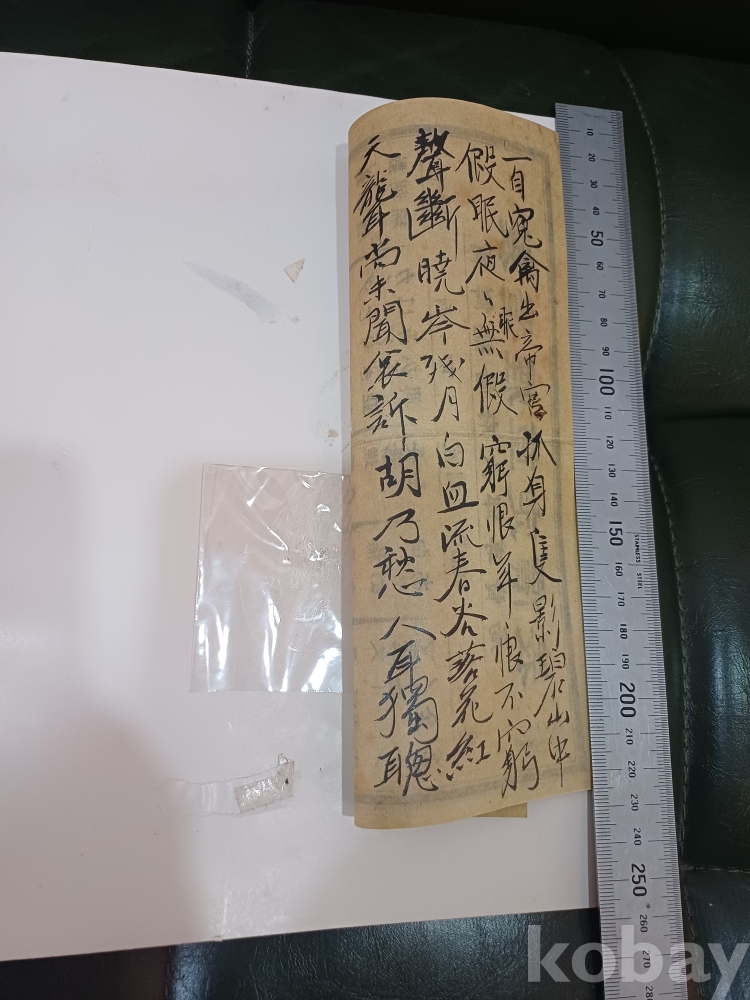 一自寃禽出帝宮孤身隻影碧山中
假眠夜〻眠無假窮恨年恨不窮
聲斷曉岑残月白血流春谷落花紅
天聾尚未聞哀訴胡乃愁人耳獨聰
10 20 30 40 50 60 70 80 90 100 110 120 130 140 150 160 170 180 190 200 210 220 230 240 250 260 270 280
STAINLESS STEEL
kobay